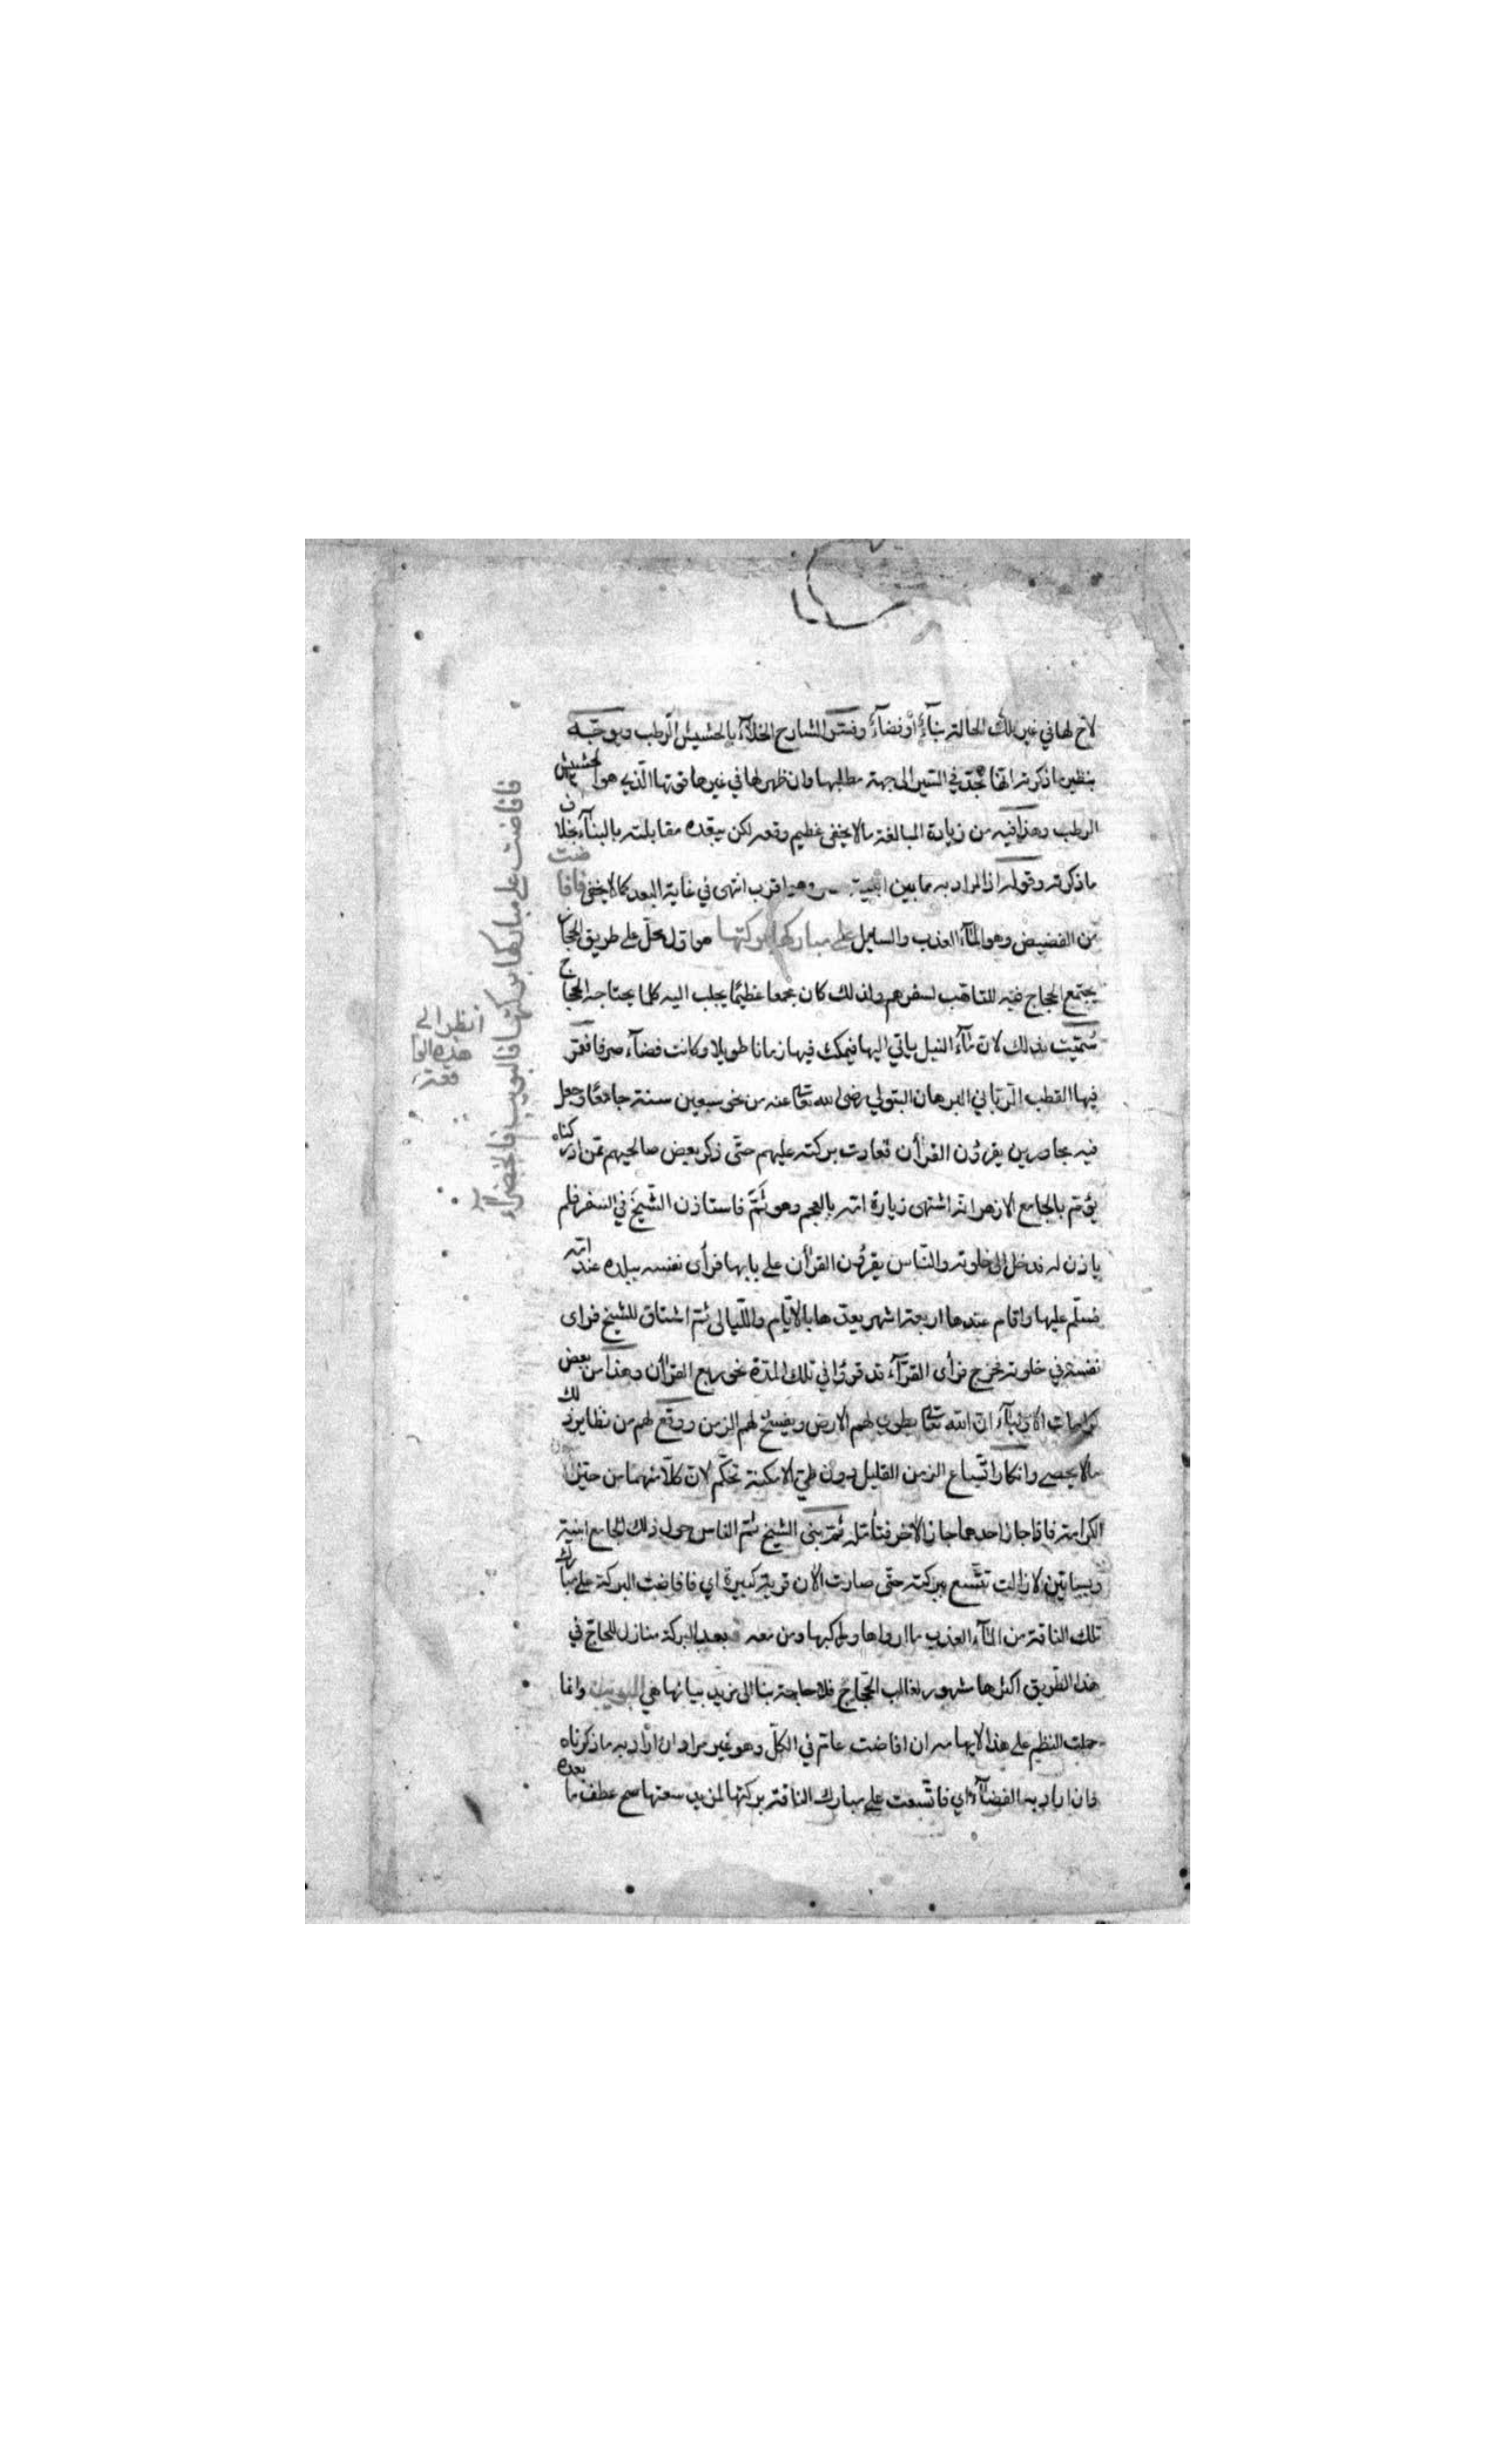 لاح لها في غير تلك الحالة بنآءٌ أو فضآءٌ وفسّر الشارح الخلآء بالحشيش الرطب ويوجّه
بنظير ما ذكرته انها تجدّ في السّير الى جهة مطلبها وان ظهر لها في غيرها قوتها الّذي هو الحشيش
الرطب وهذا فيه من زيادة المبالغة مالا يخفى عظيم وقعه لكن يبعّده مقابلته بالبنآء بخلاف
ماذكرته وقوله اذ المراد به ما بين اقرب انتهى في غاية البعد كما لا يخفى فافاضت
من الفضيض وهو المآء العذب والسايل على مباركها بركتها هو اول محلّ على طريق الحجاج
يجتمع الحجاج فيه للتاهّب لسفرهم ولذلك كان مجمعا عظيمًا يجلب اليه كلما يحتاجه الحجاج
سُمّيت بذلك لانّ مآء النيل ياتي اليها فيمكث فيها زمانا طويلا وكانت فضآء صرفا فعمّر
فيها القطب الربّاني البرهان المتبولي رضى الله تعا عنه من نحو سبعين سنة جامعًا وجعل
فيه مجاورين يقرؤن القرأن فعادت بركته عليهم حتّى ذكر بعض صالحيهم ممّن ادركناه
يؤمّ بالجامع الازهر انّه اشتهى زيارة امّه بالعجم وهو ثَمّ فاستاذن الشّيخ في السفر فلم
ياذن له فدخل الى خلوته والنّاس يقرؤن القرأن على بابها فرأى نفسه ببلده عند امّه
فسلّم عليها واقام عندها اربعة اشهر يعدّها بالايّام واللّيالى ثمّ اشتاق للشيخ فراى
نفسه في خلوته فخرج فرأى القرّآء قد قرؤا في تلك المدّة نحو ربع القرأن وهذا من بعض
كرامات الاوليآء انّ الله تعا يطوي لهم الارض ويفسح لهم الزمن ووقع لهم من نظاير ذلك
مالا يحصى وانكار اتّساع الزمن القليل دون طيّ الامكنة تحكّم لانّ كلّا منهما من حيّز
الكرامة فاذا جاز احدهما جاز الاخر فتأمّله ثمّ بنى الشيخ ثمّ الناس حول ذلك الجامع ابنية
وبساتين لازالت تتّسع ببركته حتّى صارت الان قرية كبيرة اي فافاضت البركة على مبارك
تلك الناقة من المآء العذب ما ارواها و من معه بعد البركة منازل للحاجّ في
هذا الطّريق اكثرها مشهور لغالب الحجّاج فلا حاجة بنا الى مزيد بيانها هي البويب وانما
حملت النظم على هذا لايهامه ان افاضت عامّ في الكلّ وهو غير مراد ان اراد به ما ذكرناه
فان اراد به الفضآء اي فاتّسعت على مبارك الناقة بركتها لمزيد سعتها صح عطف ما بعده
فافاضت على مباركها بركتها فالبويب فالخضرآء
انظر الى
هذه الوا
قعة